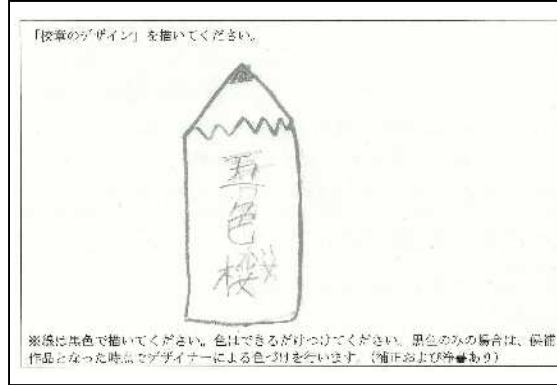 「校章のデザイン」を描いてください。
五色桜
※線は黒色で描いてください。色はできるだけつけてください。黒色のみの場合は、候補
作品となった時点でデザイナーによる色づけを行います。(補正および浄書あり)